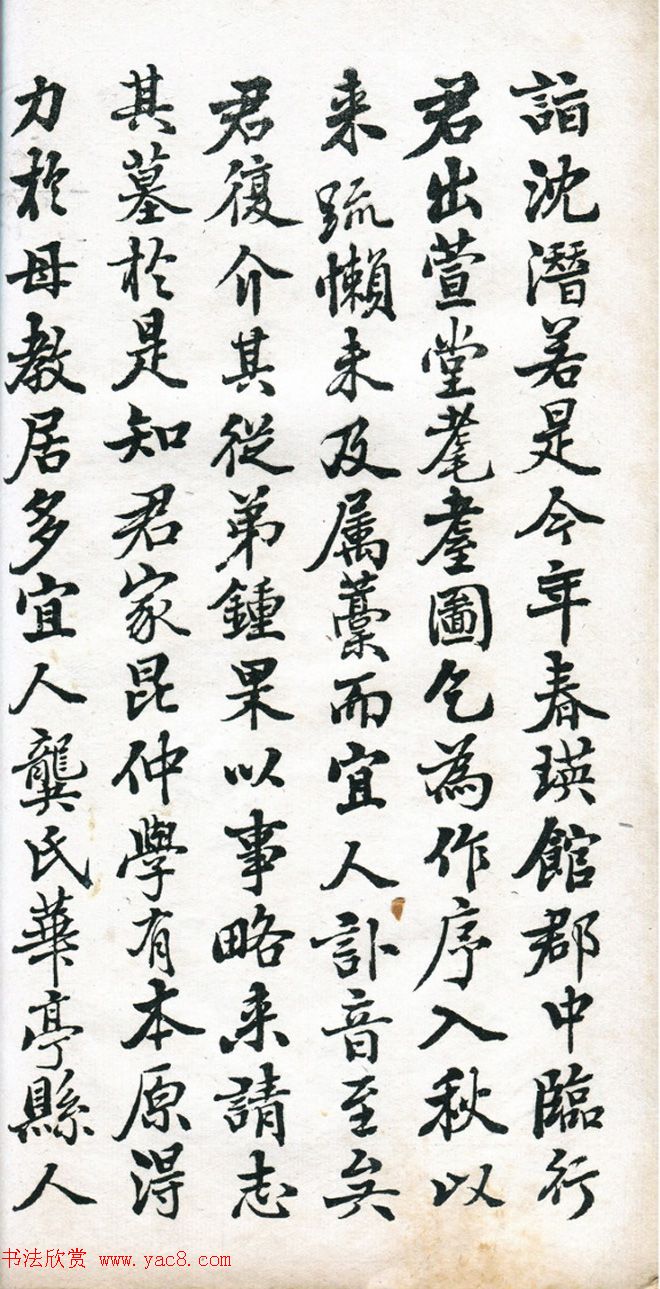 詣沈潛若是今年春瑛館郡中臨行
君出萱堂耄耋圖乞為作序入秋以
来疏懶未及属藳而宜人訃音至矣
君復介其從弟鍾果以事略来請志
其墓於是知君家昆仲學有本原得
力於母教居多宜人龔氏華亭縣人
书法欣赏 www.yac8.com